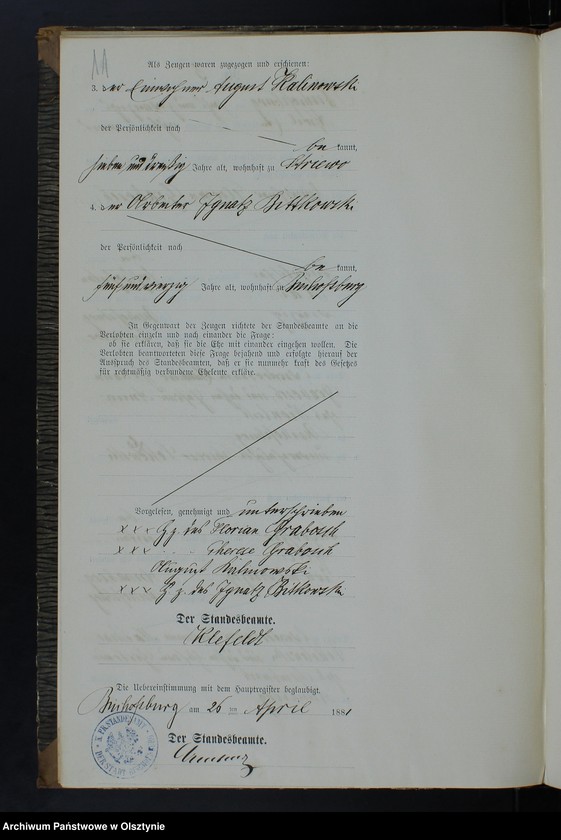 11
Als Zeugen waren zugezogen und erschienen:
3. der Einwohner August Kalinowski
der Persönlichkeit nach
be kannt,
sieben und dreißig Jahre alt, wohnhaft zu
4. der Arbeiter Ignatz Bittkowski
der Persönlichkeit nach
be kannt,
fünf und vierzig Jahre alt, wohnhaft zu Bischofsburg
In Gegenwart der Zeugen richtete der Standesbeamte an die
Verlobten einzeln und nach einander die Frage:
ob sie erklären, daß sie die Ehe mit einander eingehen wollen. Die
Verlobten beantworteten diese Frage bejahend und erfolgte hierauf der
Ausspruch des Standesbeamten, daß er sie nunmehr kraft des Gesetzes
für rechtmäßig verbundene Eheleute erkläre.
Vorgelesen, genehmigt und unterschrieben
x x x Hz. des Florian Grabosch
x x x " " Therese Grabosch
August Kalinowski
x x x Hz. des Ignatz Bittkowski
Der Standesbeamte.
Klefeldt
Die Uebereinstimmung mit dem Hauptregister beglaubigt.
Bischofsburg am 26 ten April 1881
Der Standesbeamte.
Archiwum Państwowe w Olsztynie